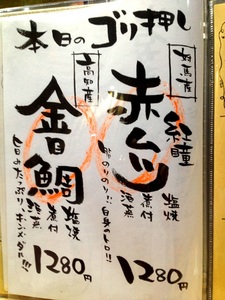 本日のゴリ押し
対馬産
紅瞳
赤ムツ
塩焼
煮付
酒蒸
脂のりのり!!白身のトロ!!
1280円
高知産
金目鯛
塩焼
煮付
酒蒸
旨味たっぷりキンメダル!!!
1280円